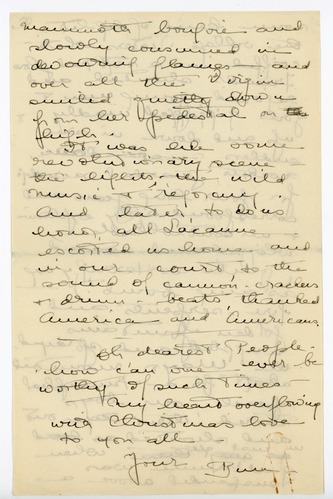 mammoth bonfire and
slowly consumed in
devouring flames - and
over all the Virgin
smiled quietly down
from her pedestal on
high.
It was like some
revolutionary scene
the lights - the wild
music & rejoicing.
And later, to do us
honor, all Lusanne
escorted us home and
in our court to the
sound of cannon-crackers
& drum-beats, thanked
America and Americans.
Oh dearest People -
how can one ever be
worthy of such times -
My heart overflowing
with Christmas love
to you all -
Your